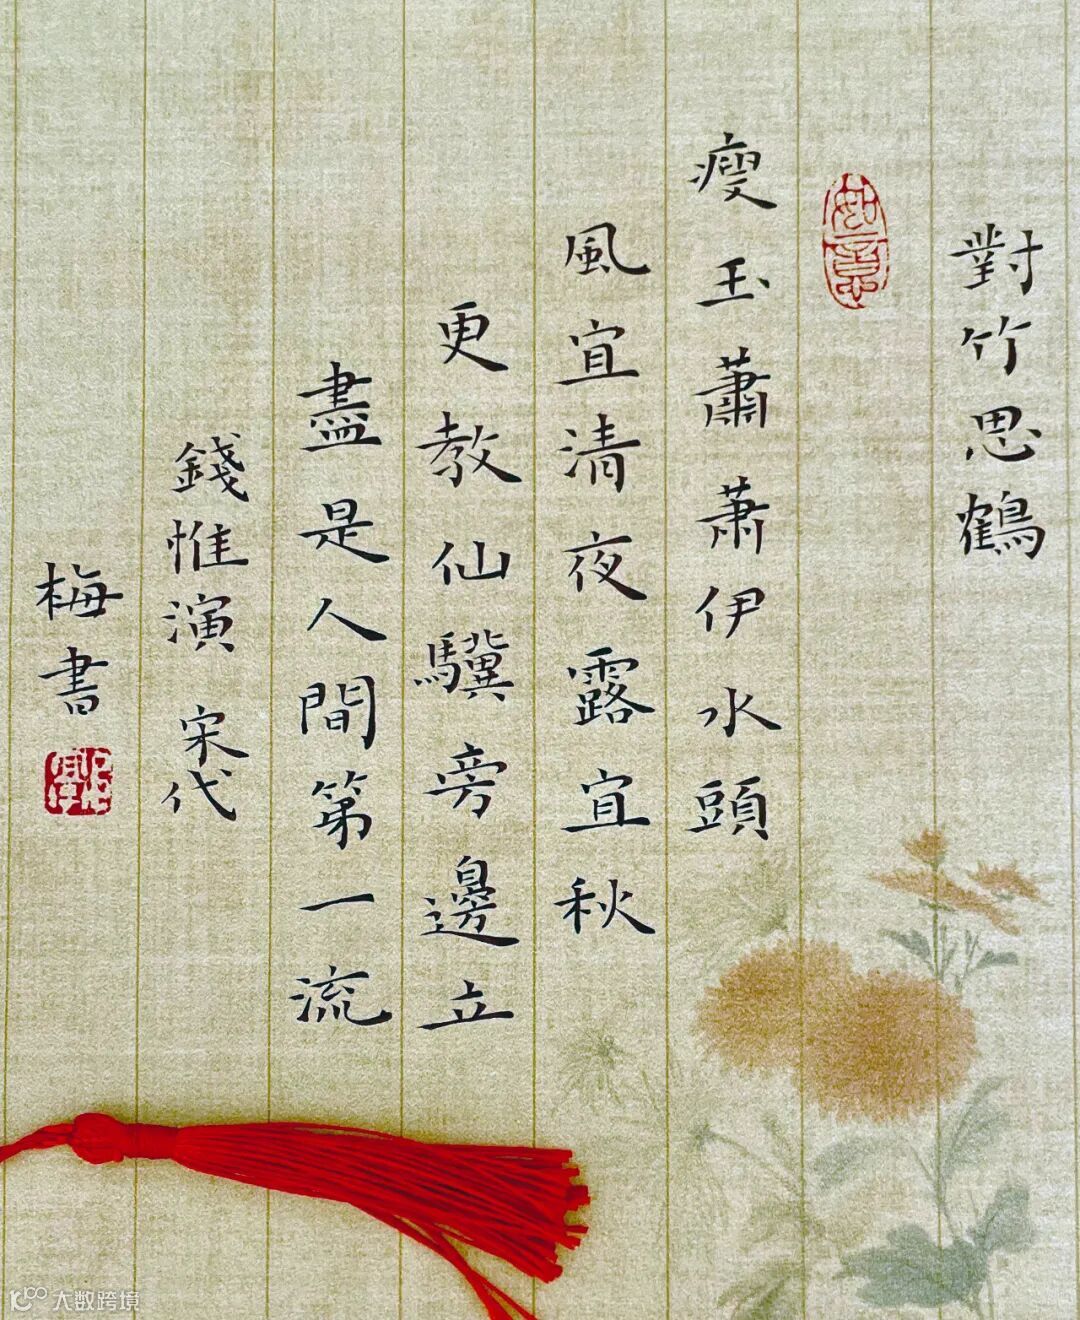 對竹思鶴
如意
瘦玉蕭蕭伊水頭
風宜清夜露宜秋
更教仙驥旁邊立
盡是人間第一流
錢惟演 宋代
梅書
大数跨境